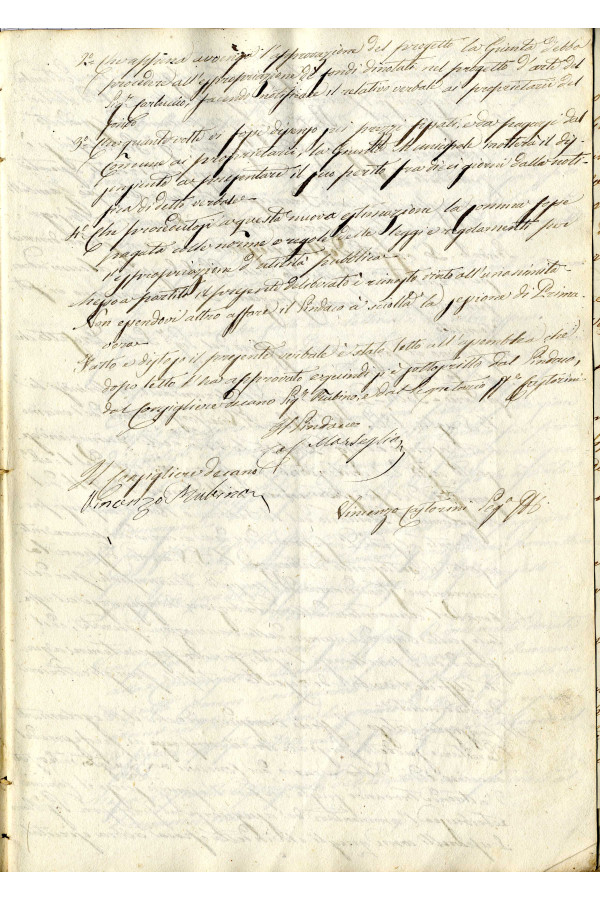 2.° Che appena avvenga l'approvazione del progetto la Giunta debba
procedere all'espropriazione di fondi dinotati nel progetto d'arte del
Sig.r facendo notificare il relativo verbale ai proprietarii del
fondo
3.° Che quante volte vi fosse dissenso pei prezzi fissati, e da pagarsi dal
Comune ai proprietarii, la Giunta Municipale metterà il dis-
senziente a presentare il suo perito fra dieci giorni dalla noti-
fica di detto verbale
4.° Che procedutosi a questa nuova estimazione la somma sarà
pagata colle norme e regole delle leggi e regolamenti per
espropriazione d'utilità pubblica.
Messo a partito il presente deliberato è rimasto vinto all'unanimità.
Non essendovi altro affare il Sindaco à sciolta la sessione di Prima-
vera.
Fatto e disteso il presente verbale è stato letto all'assemblea che
dopo letto l'ha approvato e quindi si è sottoscritto dal Sindaco,
dal Consigliere decano Sig.r Rubino, e dal Segretario
Il Sindaco
Marseglia
Il Consigliere decano
Vincenzo Rubino
Vincenzo Seg.o